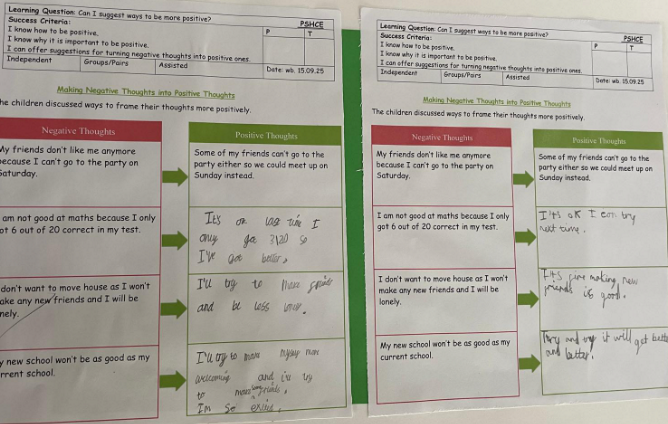 Learning Question: Can I suggest ways to be more positive?
PSHCE
Success Criteria:
P T
I know how to be positive.
I know why it is important to be positive.
I can offer suggestions for turning negative thoughts into positive ones.
Independent Groups/Pairs Assisted
Date: wb. 15.09.25
Making Negative Thoughts into Positive Thoughts
he children discussed ways to frame their thoughts more positively.
Negative Thoughts
Positive Thoughts
My friends don't like me anymore
because I can't go to the party on
Saturday.
Some of my friends can't go to the
party either so we could meet up on
Sunday instead.
am not good at maths because I only
ot 6 out of 20 correct in my test.
It's ok last time I
only got 3/20 so
I've got better.
don't want to move house as I won't
ake any new friends and I will be
nely.
I'll try to
and be less
y new school won't be as good as my
rrent school.
I'll try to more
welcoming and
to more
I'm so
Learning Question: Can I suggest ways to be more positive?
PSHCE
Success Criteria:
P T
I know how to be positive.
I know why it is important to be positive.
I can offer suggestions for turning negative thoughts into positive ones.
Independent Groups/Pairs Assisted
Date: wb. 15.09.25
Making Negative Thoughts into Positive Thoughts
The children discussed ways to frame their thoughts more positively.
Negative Thoughts
Positive Thoughts
My friends don't like me anymore
because I can't go to the party on
Saturday.
Some of my friends can't go to the
party either so we could meet up on
Sunday instead.
I am not good at maths because I only
got 6 out of 20 correct in my test.
I'ts ok I can try
next time.
I don't want to move house as I won't
make any new friends and I will be
lonely.
making new
friends is good.
My new school won't be as good as my
current school.
Try and try it will get better
and better.